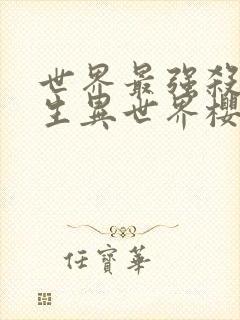 世界最强殺
生異世界櫻
任寶華